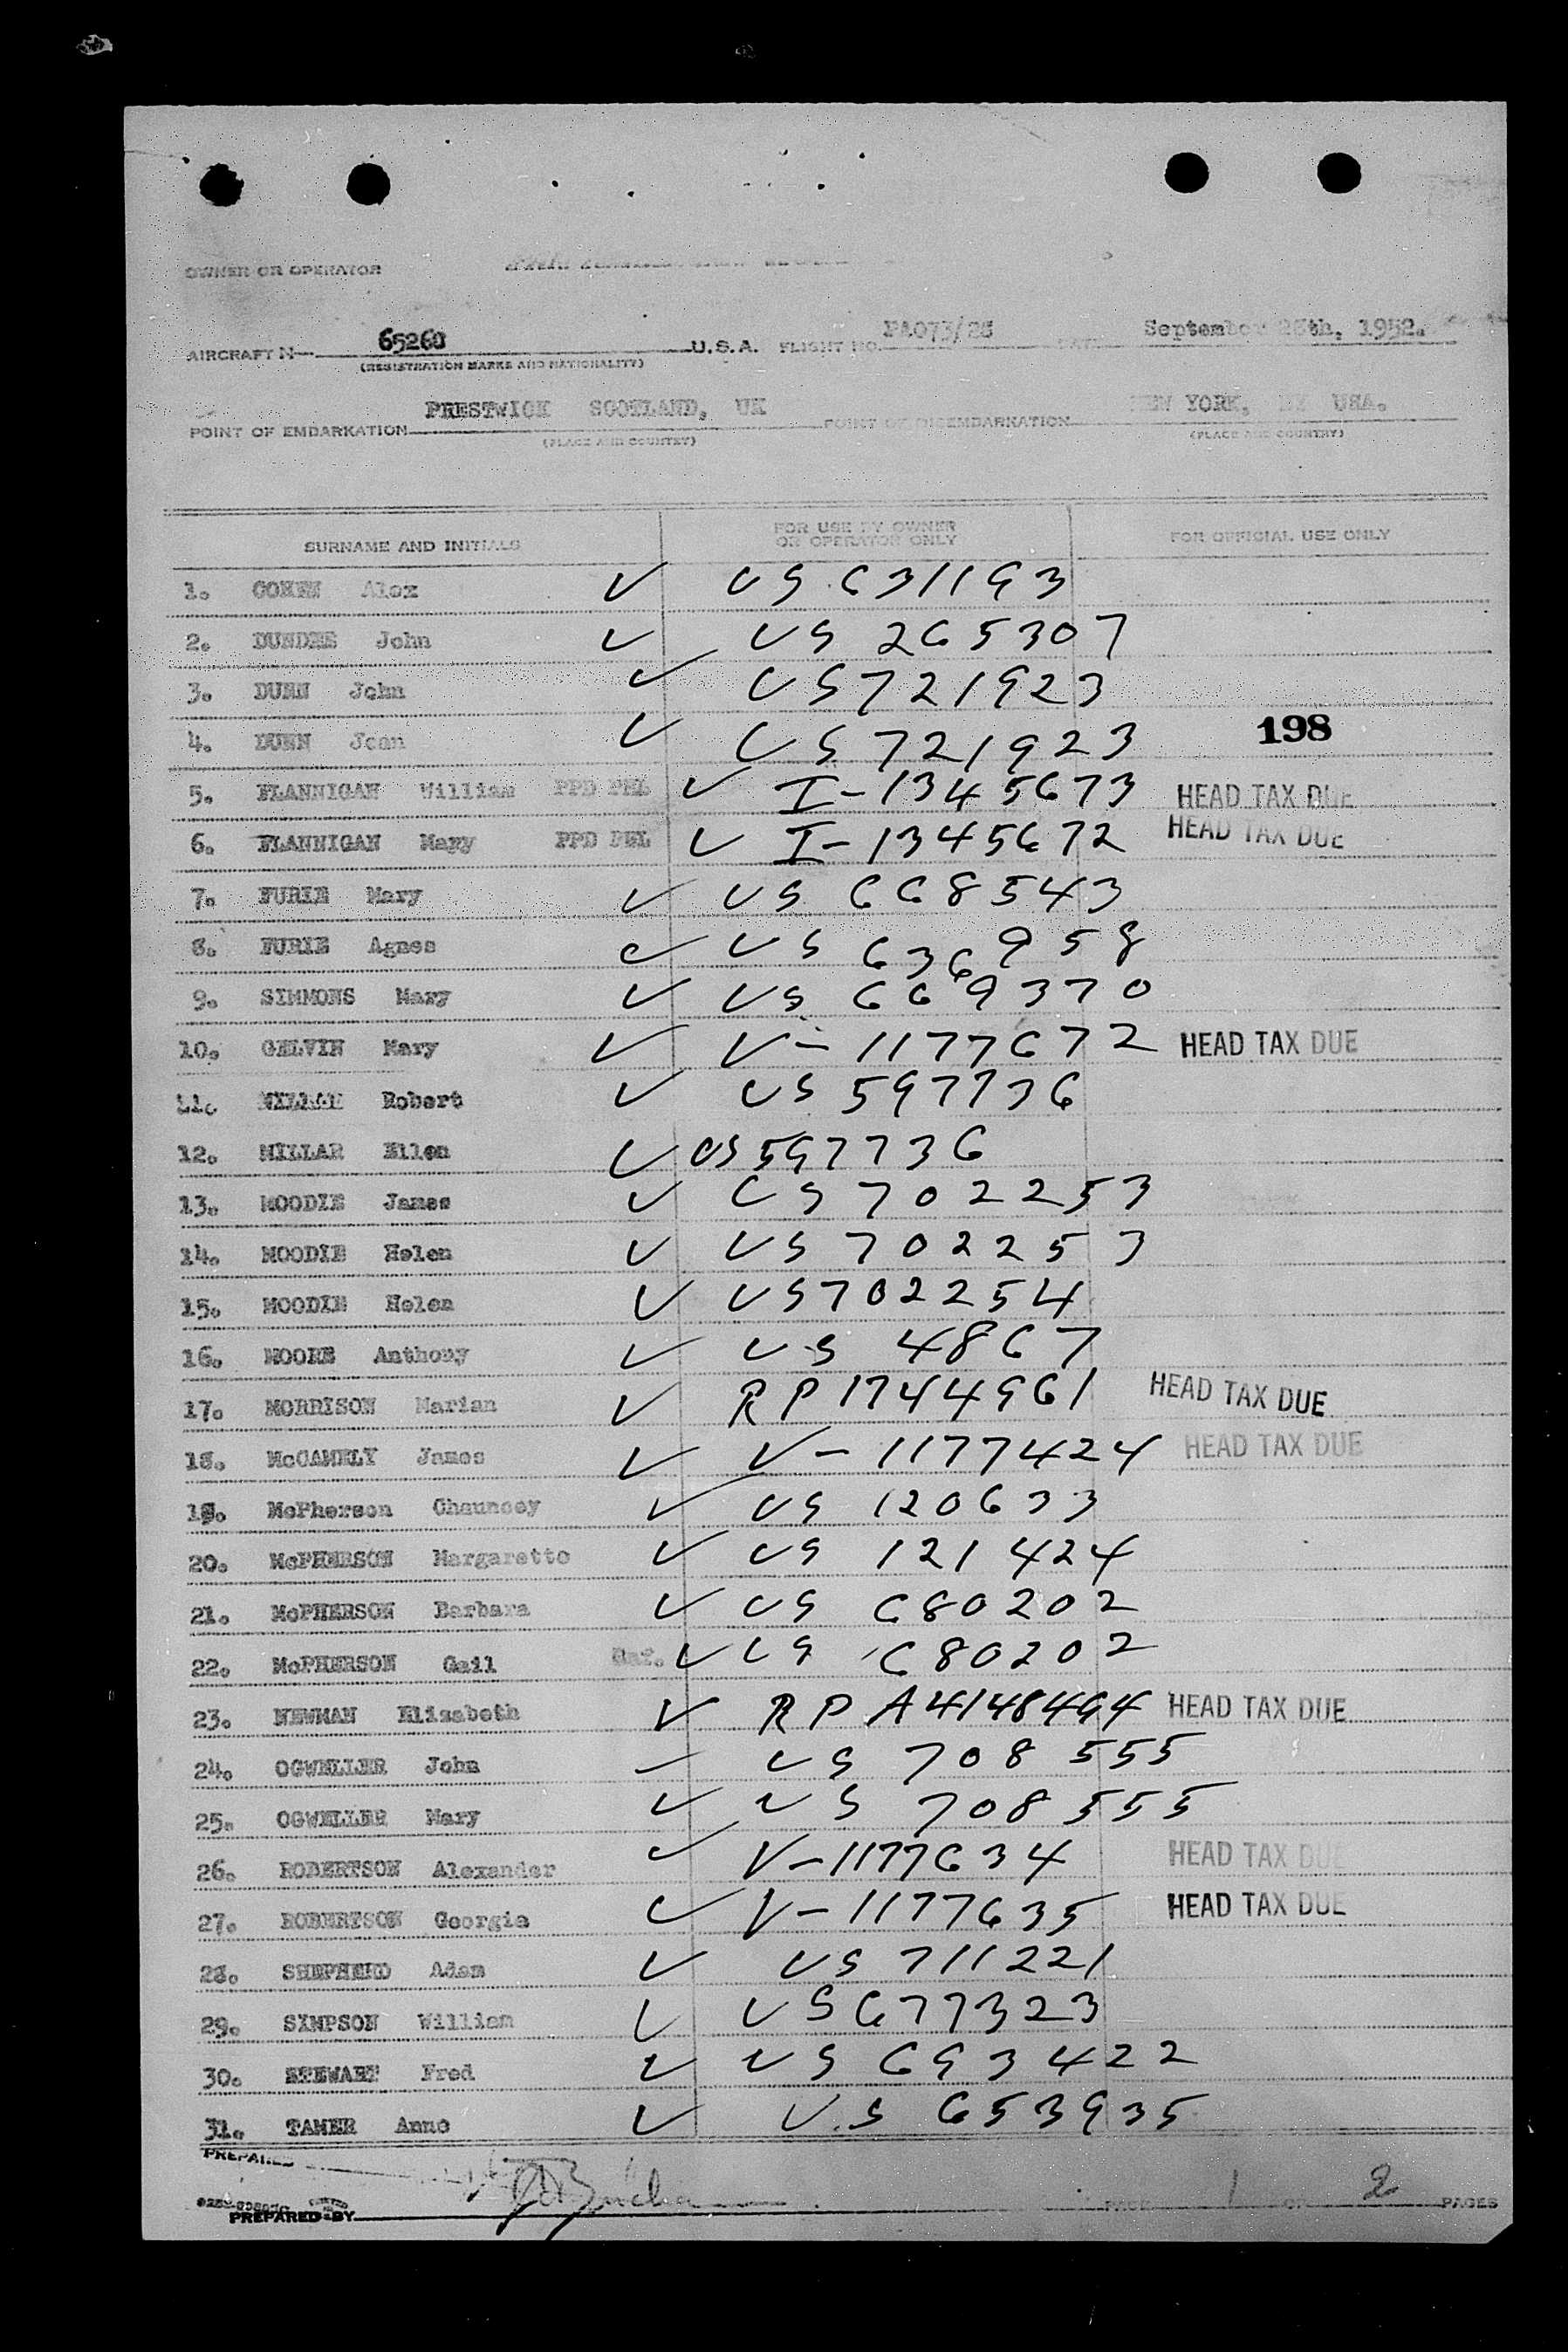 OWNER OR OPERATOR
AIRCRAFT N— 65260 U.S.A. FLIGHT NO. PA073/28 DATE September 28th, 1952.
(REGISTRATION MARKS AND NATIONALITY)
POINT OF EMBARKATION PRESTWICK SCOTLAND, UK POINT OF DISEMBARKATION NEW YORK, NY USA.
(PLACE AND COUNTRY) (PLACE AND COUNTRY)
SURNAME AND INITIALS FOR USE BY OWNER OR OPERATOR ONLY FOR OFFICIAL USE ONLY
1. COHEN Alex ✓ US 631193
2. DUNDEE John ✓ US 265307
3. DUNN John ✓ US 721923
4. DUNN Jean ✓ US 721923 198
5. FLANNIGAN William PPD PEL ✓ I-1345673 HEAD TAX DUE
6. FLANNIGAN Mary PPD PEL ✓ I-1345672 HEAD TAX DUE
7. FURIE Mary ✓ US 668543
8. FURIE Agnes ✓ US 636958
9. SIMMONS Mary ✓ US 669370
10. GELVIN Mary ✓ V-1177672 HEAD TAX DUE
11. Robert ✓ US 597736
12. MILLAR Ellen ✓ US 597736
13. MOODIE James ✓ US 702253
14. MOODIE Helen ✓ US 702253
15. MOODIE Helen ✓ US 702254
16. MOORE Anthony ✓ US 4867
17. MORRISON Marian ✓ RP 1744961 HEAD TAX DUE
18. McCAMELY James ✓ V-1177424 HEAD TAX DUE
19. McPherson Chauncey ✓ US 120633
20. McPHERSON Margarette ✓ US 121424
21. McPHERSON Barbara ✓ US 680202
22. McPHERSON Gail ✓ US 680202
23. NEWMAN Elizabeth ✓ RP A4148494 HEAD TAX DUE
24. OGWELLER John ✓ US 708555
25. OGWELLER Mary ✓ US 708555
26. ROBERTSON Alexander ✓ V-1177634 HEAD TAX DUE
27. ROBERTSON Georgia ✓ V-1177635 HEAD TAX DUE
28. SHEPHERD Adam ✓ US 711221
29. SIMPSON William ✓ US 677323
30. STEWART Fred ✓ US 693422
31. TAMER Anne ✓ US 653935
PREPARED
PREPARED BY PAGE 1 OF 2 PAGES